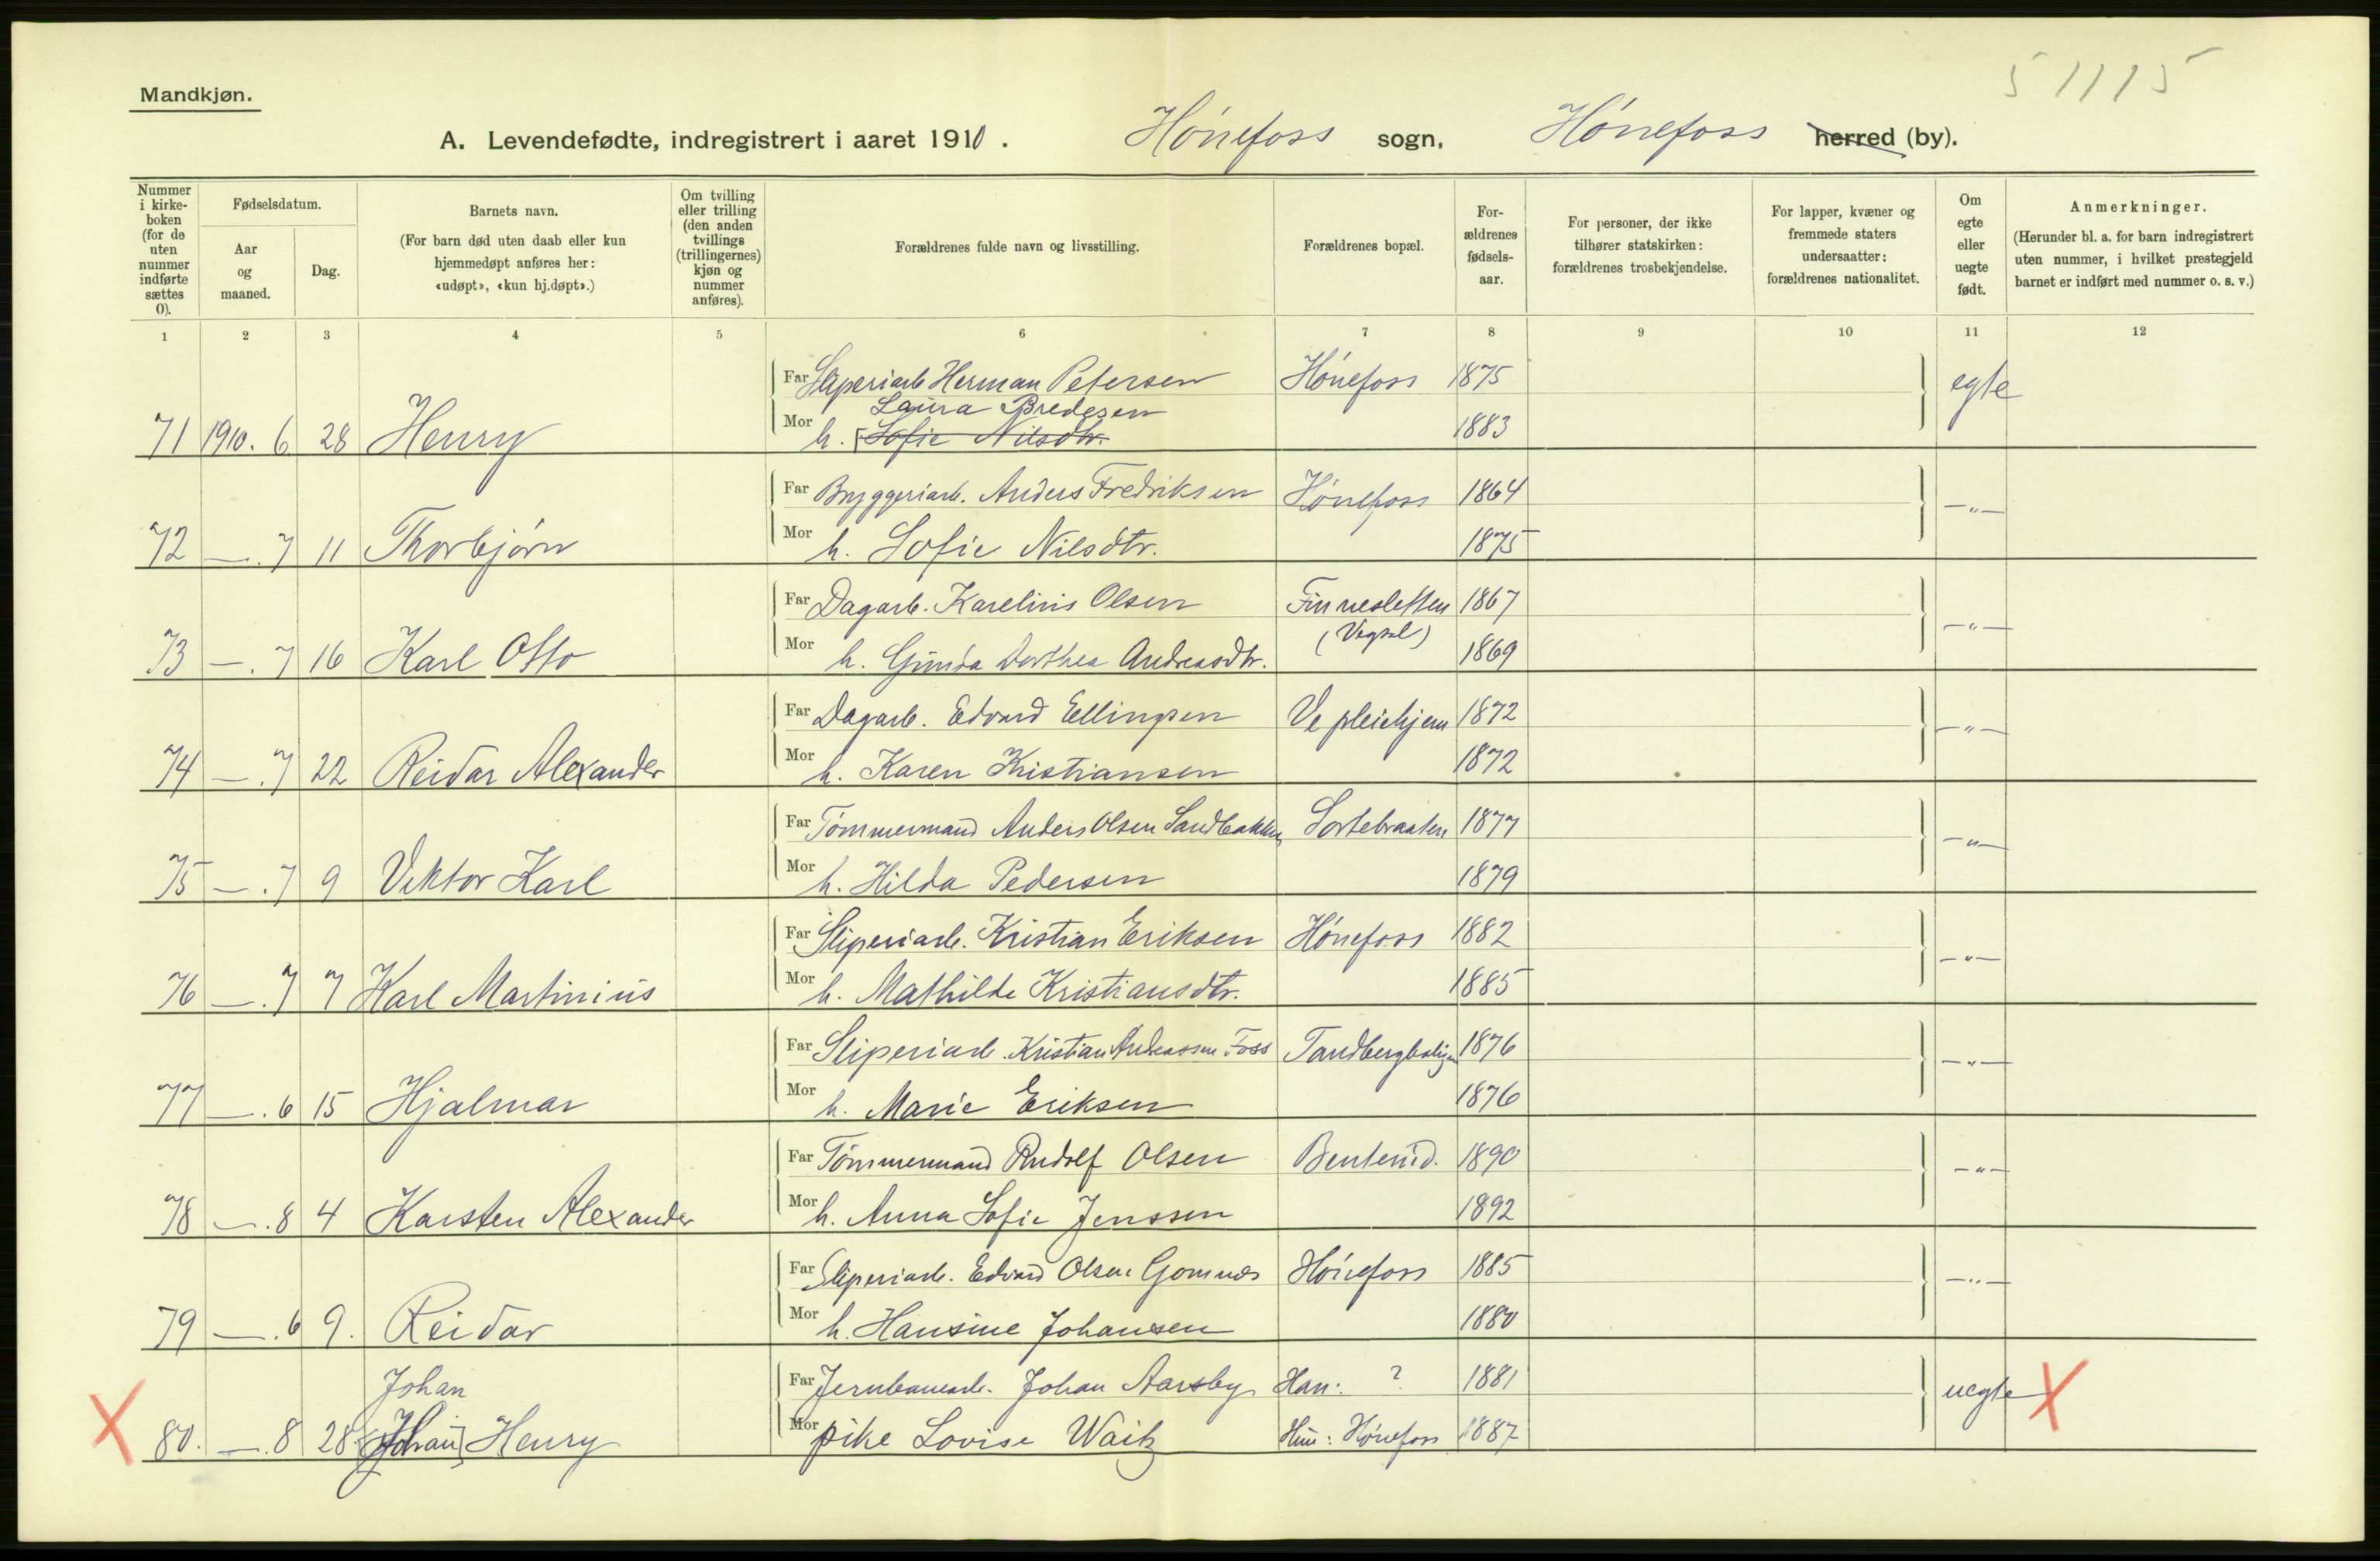 51115
Mandkjøn.
A. Levendefødte, indregistrert i aaret 1910. Hönefoss sogn, Hönefoss herred (by).
Nummer i kirkeboken (for de uten nummer indførte sættes 0).
Fødselsdatum.
Aar og maaned.
Dag.
Barnets navn.
(For barn død uten daab eller kun hjemmedøpt anføres her: «udøpt», «kun hj.døpt».)
Om tvilling eller trilling (den anden tvillings (trillingernes) kjøn og nummer anføres).
Forældrenes fulde navn og livsstilling.
Forældrenes bopæl.
Forældrenes fødselsaar.
For personer, der ikke tilhører statskirken: forældrenes trosbekjendelse.
For lapper, kvæner og fremmede staters undersaatter: forældrenes nationalitet.
Om egte eller uegte født.
Anmerkninger.
(Herunder bl. a. for barn indregistrert uten nummer, i hvilket prestegjeld barnet er indført med nummer o. s. v.)
1 2 3 4 5 6 7 8 9 10 11 12
Far Sliperiarb Herman Petersen Hönefoss 1875 egte
Laura Bredesen
71 1910. 6 28 Henry Mor h. [Sofie Nilsdtr. 1883
Far Bryggeriarb. Anders Fredriksen Hönefoss 1864 -"-
72 -. 7 11 Thorbjörn Mor h. Sofie Nilsdtr. 1875
Far Dagarb. Karelius Olsen Finnesletten 1867 -"-
(Vegsel)
73 -. 7 16 Karl Otto Mor h. Gunda Dorthea Andreasdtr. 1869
Far Dagarb. Edvard Ellingsen Ve pleiehjem 1872 -"-
74 -. 7 22 Reidar Alexander Mor h. Karen Kristiansen 1872
Far Tömmermand Anders Olsen Sandbakken Sortebraaten 1877 -"-
75 -. 7 9 Viktor Karl Mor h. Hilda Pedersen 1879
Far Sliperiarb. Kristian Eriksen Hönefoss 1882 -"-
76 -. 7 7 Karl Martinius Mor h. Mathilde Kristiansdtr. 1885
Far Sliperiarb. Kristian Andreassen Foss Tandbergboligen 1876 -"-
77 -. 6 15 Hjalmar Mor h. Marie Eriksen 1876
Far Tömmermand Rudolf Olsen Benterud. 1890 -"-
78 -. 8 4 Karsten Alexander Mor h. Anna Sofie Jenssen 1892
Far Sliperiarb. Edvard Olsen Gomnæs Hönefoss 1885 -"-
79 -. 6 9. Reidar Mor h. Hansine Johansen 1880
Johan Far Jernbanearb. Johan Aarsby Han: ? 1881 uegte X
X 80. -. 8 28 [Johan] Henry Mor pike Lovise Waitz Hun: Hönefoss 1887